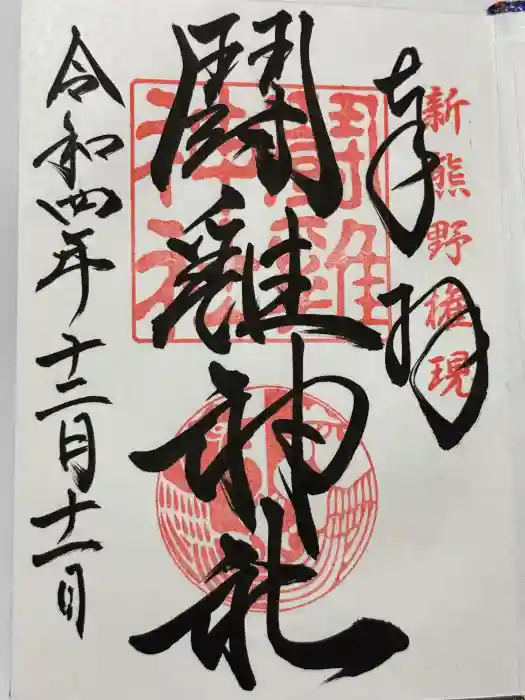 奉拝
新熊野権現
闘雞神社
闘雞神社
令和四年十二月十一日